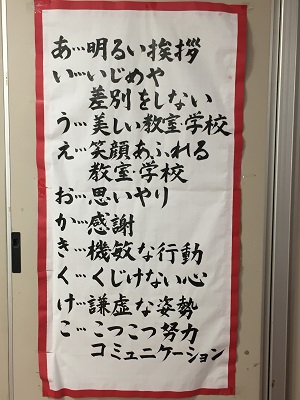 あ…明るい挨拶
い…いじめや
差別をしない
う…美しい教室・学校
え…笑顔あふれる
教室・学校
お…思いやり
か…感謝
き…機敏な行動
く…くじけない心
け…謙虚な姿勢
こ…こつこつ努力
コミュニケーション